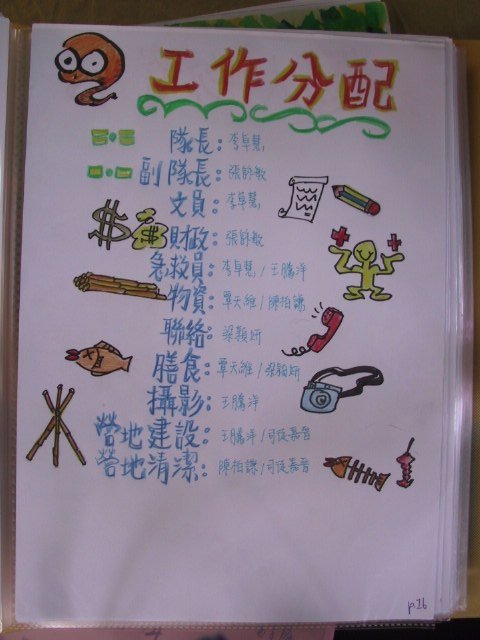 工作分配
隊長：李卓慧
副隊長：張詠敏
文員：李卓慧
財政：張詠敏
急救員：李卓慧/王騰洋
物資：覃天維/陳柏鏮
聯絡：梁穎妍
膳食：覃天維/梁穎妍
攝影：王騰洋
營地建設：王騰洋/司徒嘉晉
營地清潔：陳柏鏮/司徒嘉晉
p.26